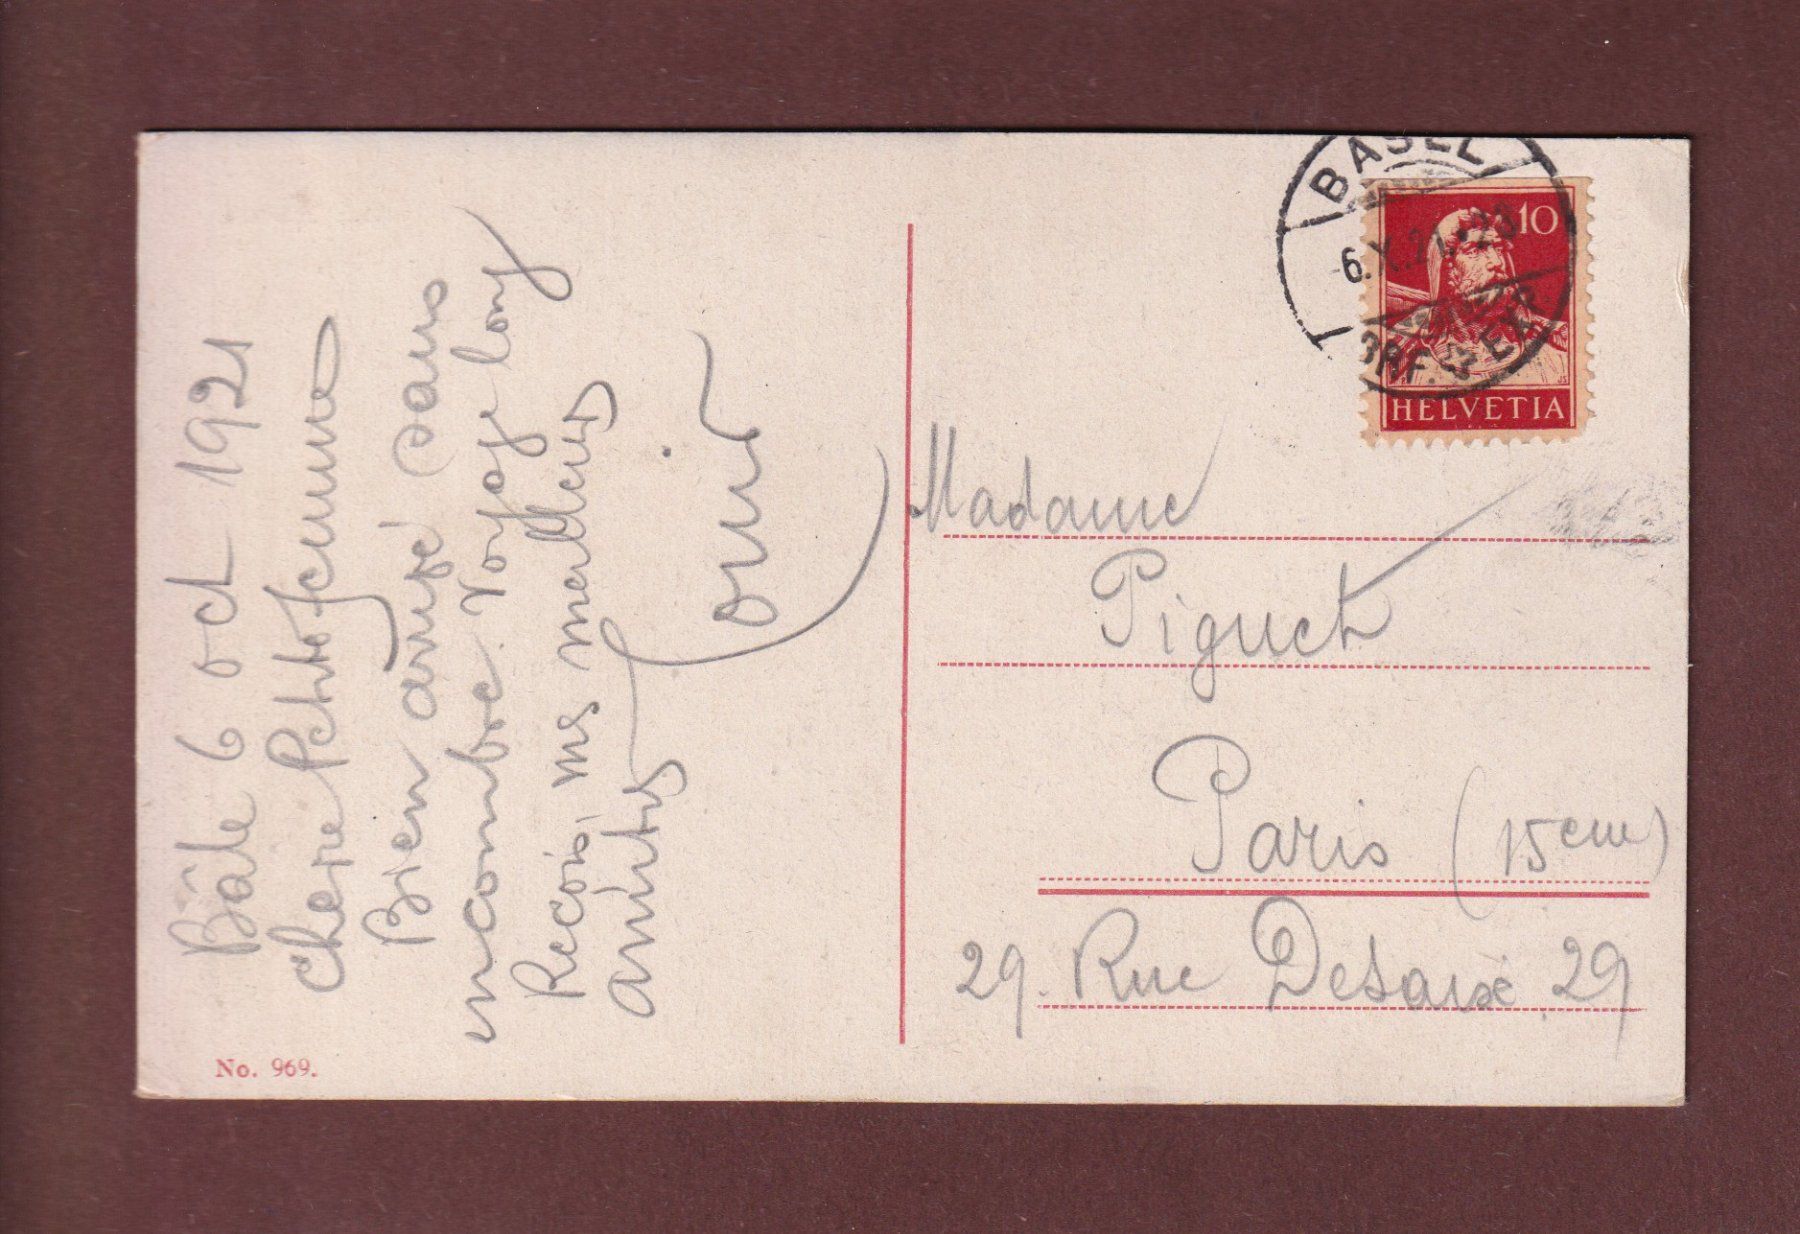 Bâle 6 oct 1921
Chère Petite femme
Bien arrivé sans
encombre. Voyage long
Reçois, mes meilleurs
amitiés
No. 969.
BASEL
6.X.21.-20
BRF. EXP.
10
HELVETIA
Madame
Piguet
Paris (15em)
29. Rue Desaix 29